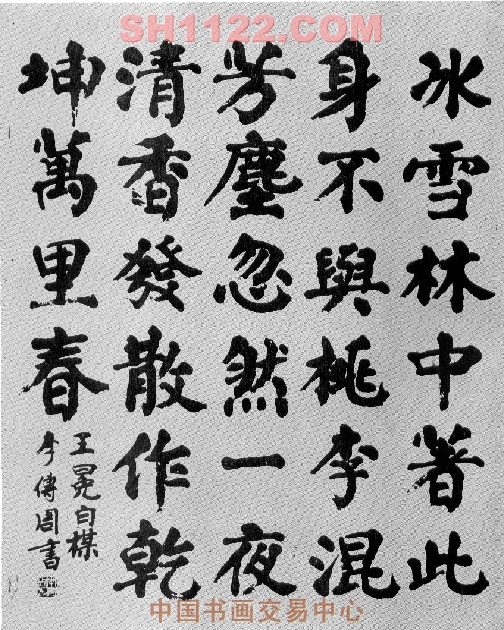 SH1122.COM
冰雪林中著此
身不與桃李混
芳塵忽然一夜
清香發散作乾
坤萬里春
王冕白楳
李傳周書
中国书画交易中心